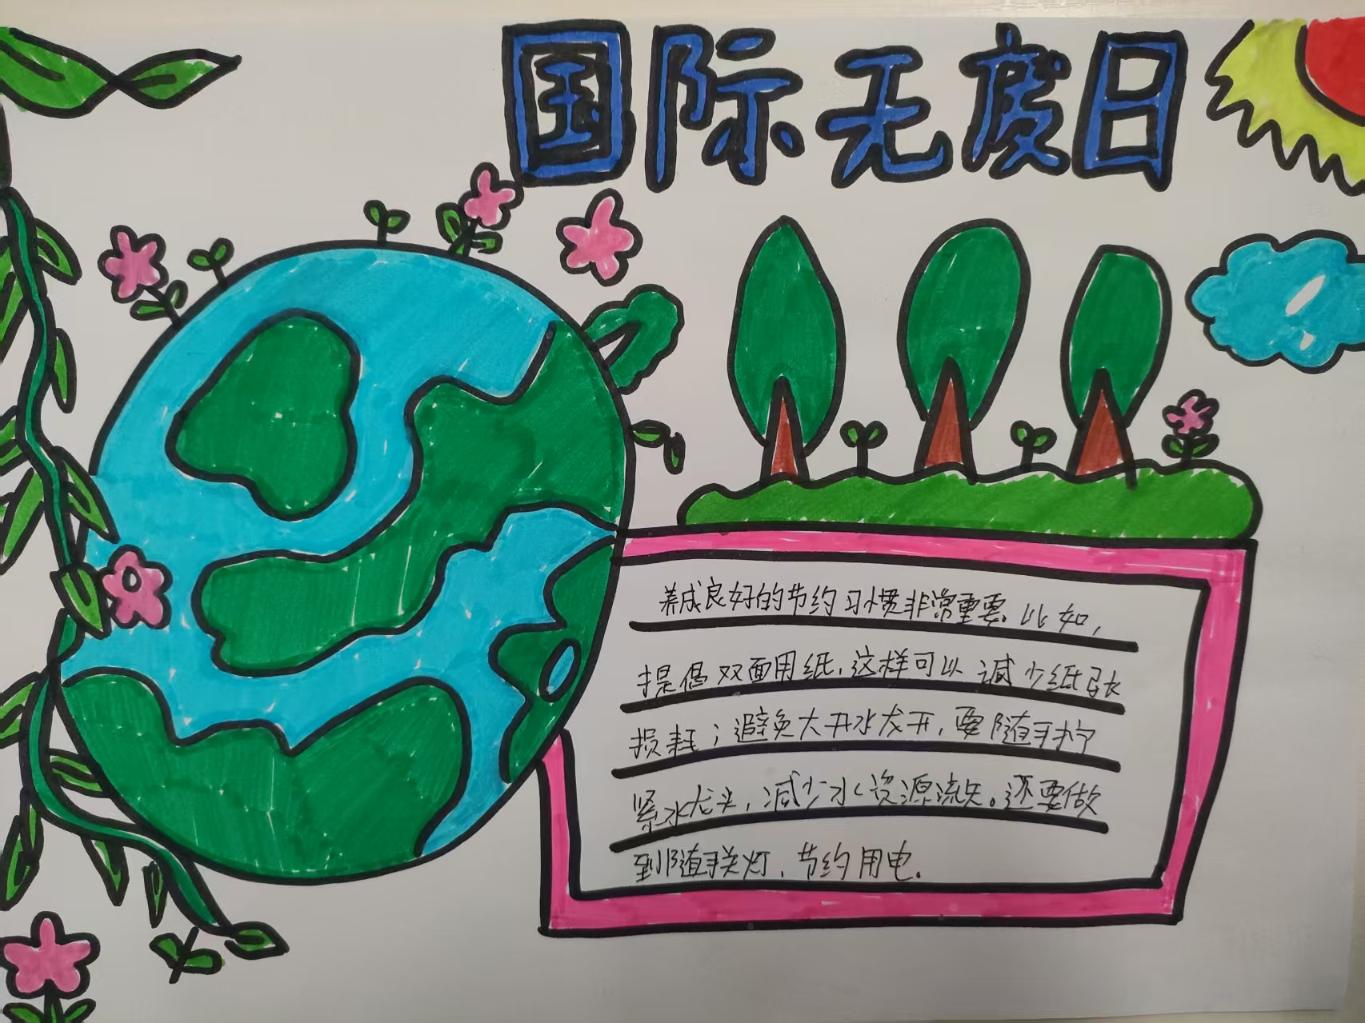 国际无废日
养成良好的节约习惯非常重要。比如，
提倡双面用纸，这样可以减少纸张
损耗；避免大开水龙开，要随手拧
紧水龙头，减少水资源流失。还要做
到随手关灯，节约用电。